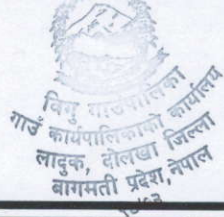 विगु गाउँपालिका
गाउँ कार्यपालिकाको कार्यालय
लादुक, दोलखा जिल्ला
बागमती प्रदेश, नेपाल